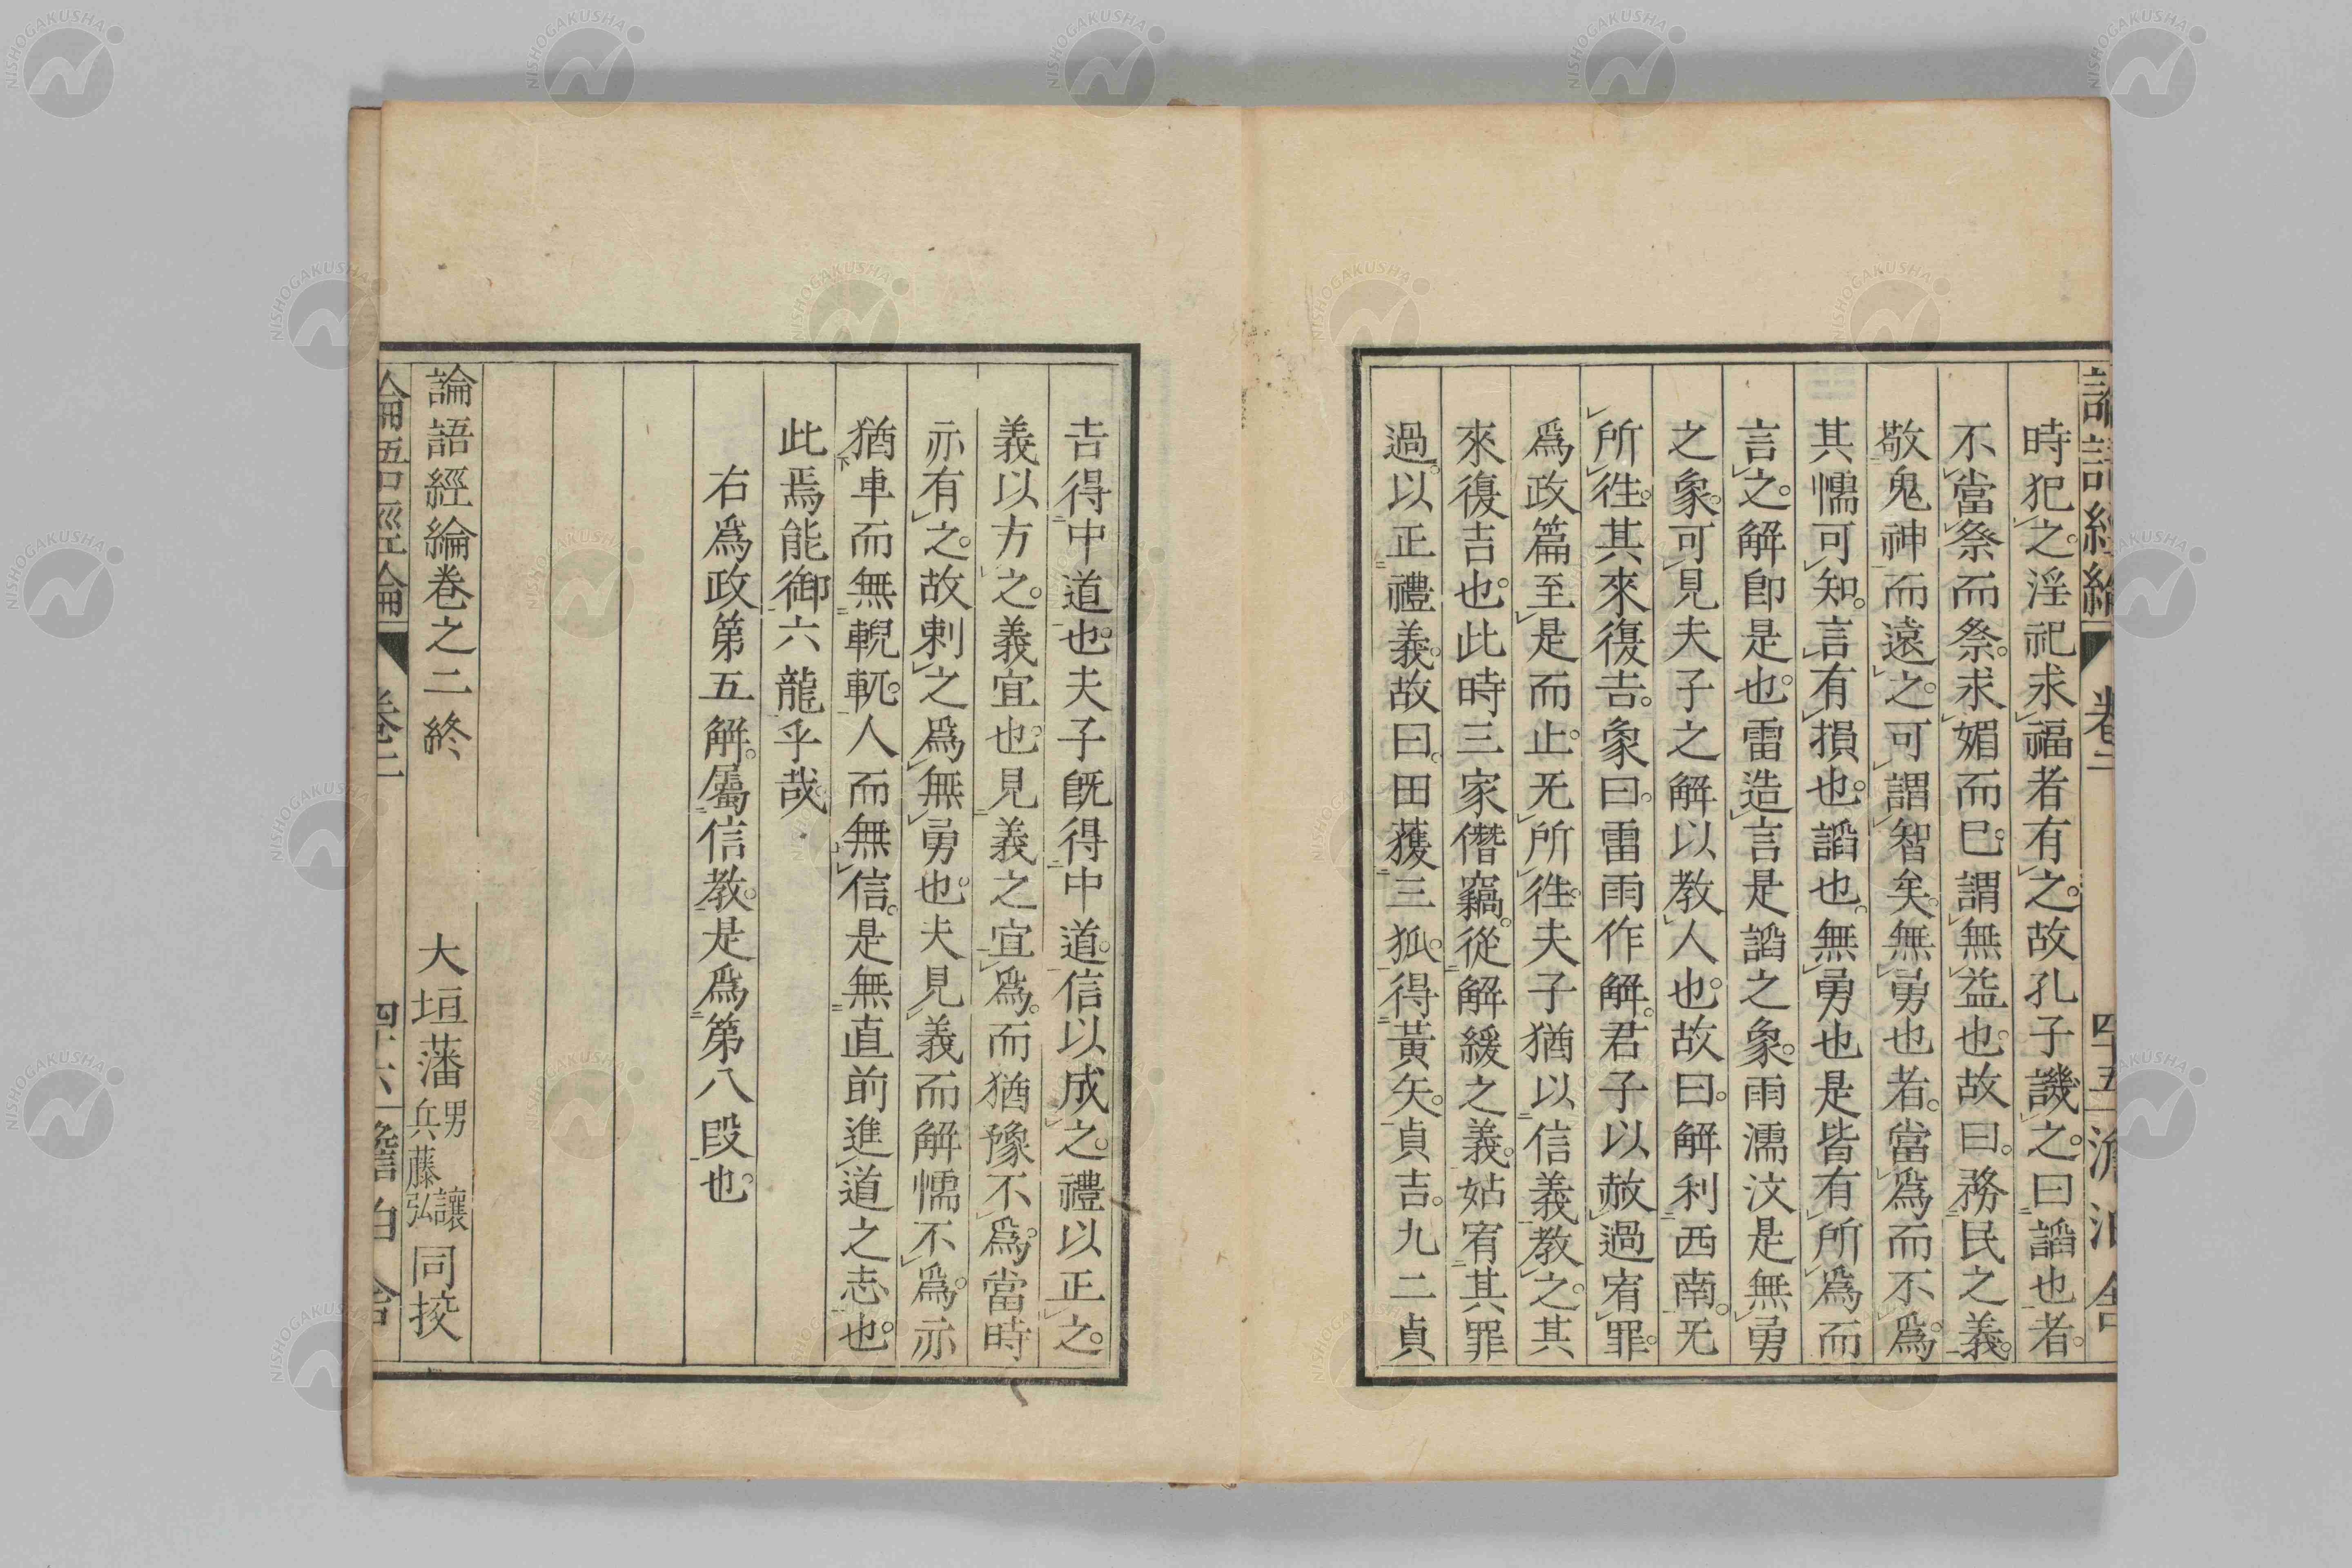 時犯之。淫祀求福者有之。故孔子譏之。曰諂也者。
不當祭而祭。求媚而已。謂無益也。故曰。務民之義。
敬鬼神而遠之。可謂智矣。無勇也者。當為而不為。
其懦可知。言有損也。諂也。無勇也是皆有所為而
言之。解卽是也。雷造言是諂之象。雨濡汶是無勇
之象。可見夫子之解以教人也。故曰。解利西南。无
所徃。其來復吉。象曰。雷雨作解。君子以赦過宥罪。
爲政篇至是而止。无所徃。夫子猶以信義教之。其
來復吉也。此時三家僭竊。從解緩之義。姑宥其罪
過。以正禮義。故曰。田獲三狐。得黃矢。貞吉。九二貞
吉得中道也。夫子旣得中道。信以成之。禮以正之。
義以方之。義宜也。見義之宜爲。而猶豫不爲。當時
亦有之。故刺之爲無勇也。夫見義而解懦不爲。亦
猶車而無輗軏。人而無信。是無直前進道之志也。
此焉能御六龍乎哉。
右爲政第五解。屬信教。是爲第八段也。
論語經綸卷之二終
大垣藩 男 讓 兵藤弘 同挍
論語經綸 卷二 四十五
論語經綸 卷二 四十六
NISHOGAKUSHA